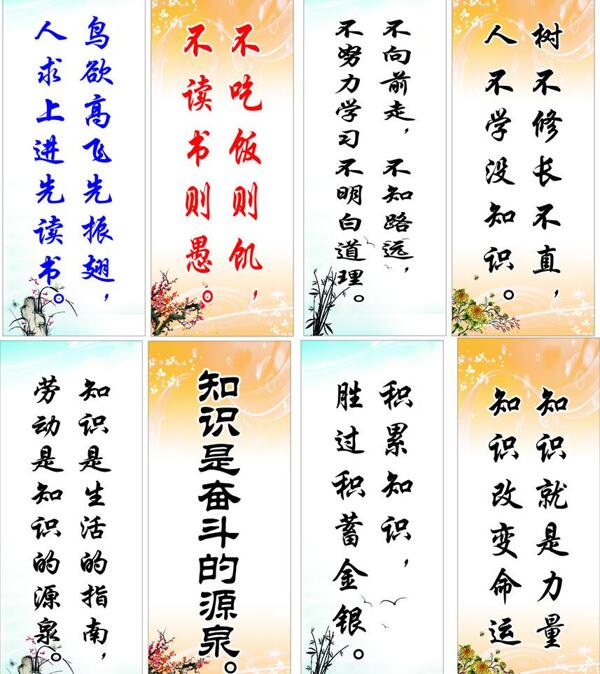 鸟欲高飞先振翅，
人求上进先读书。
不吃饭则饥，
不读书则愚。
不向前走，不知路远，
不努力学习不明白道理。
树不修长不直，
人不学没知识。
知识是生活的指南，
劳动是知识的源泉。
知识是奋斗的源泉。
积累知识，
胜过积蓄金银。
知识就是力量
知识改变命运